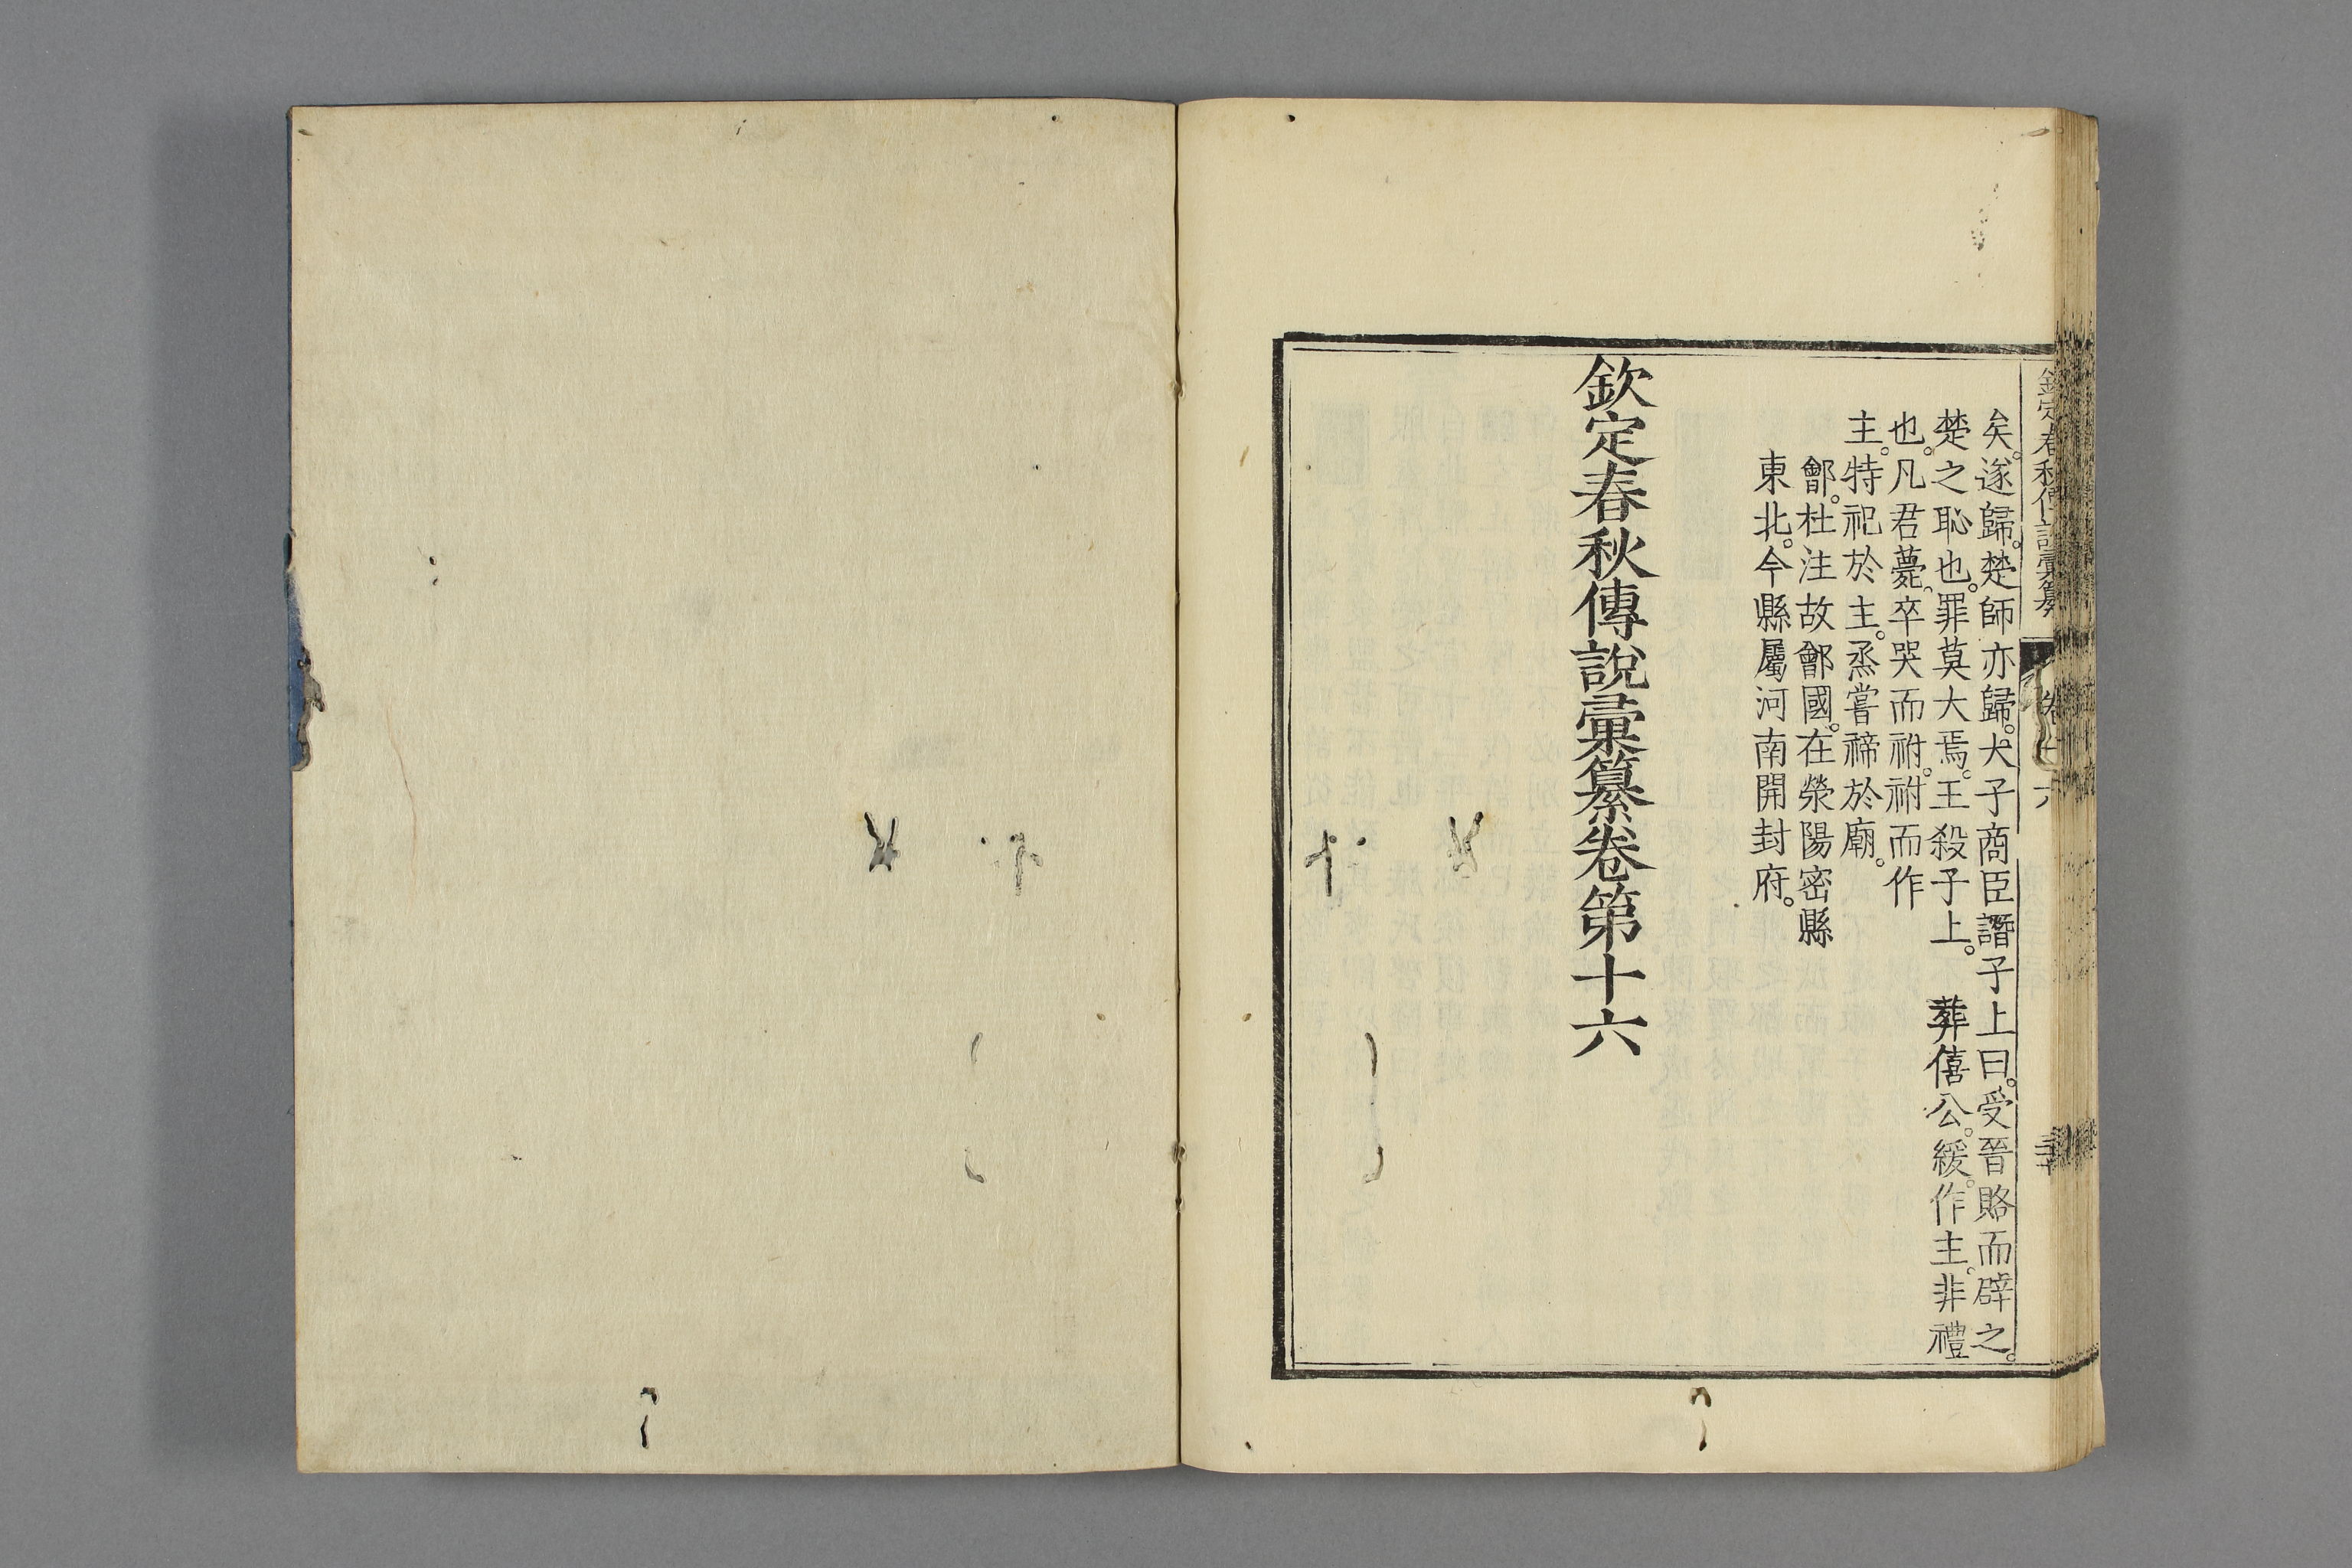 欽定春秋傳說彙纂 卷十六
矣。遂歸。楚師亦歸。大子商臣譖子上曰。受晉賂而辟之。
楚之恥也。罪莫大焉。王殺子上。 葬僖公。緩。作主。非禮
也。凡君薨。卒哭而祔。祔而作
主。特祀於主。烝嘗禘於廟。
鄫。杜注故鄫國。在滎陽密縣
東北。今縣屬河南開封府。
欽定春秋傳說彙纂卷第十六